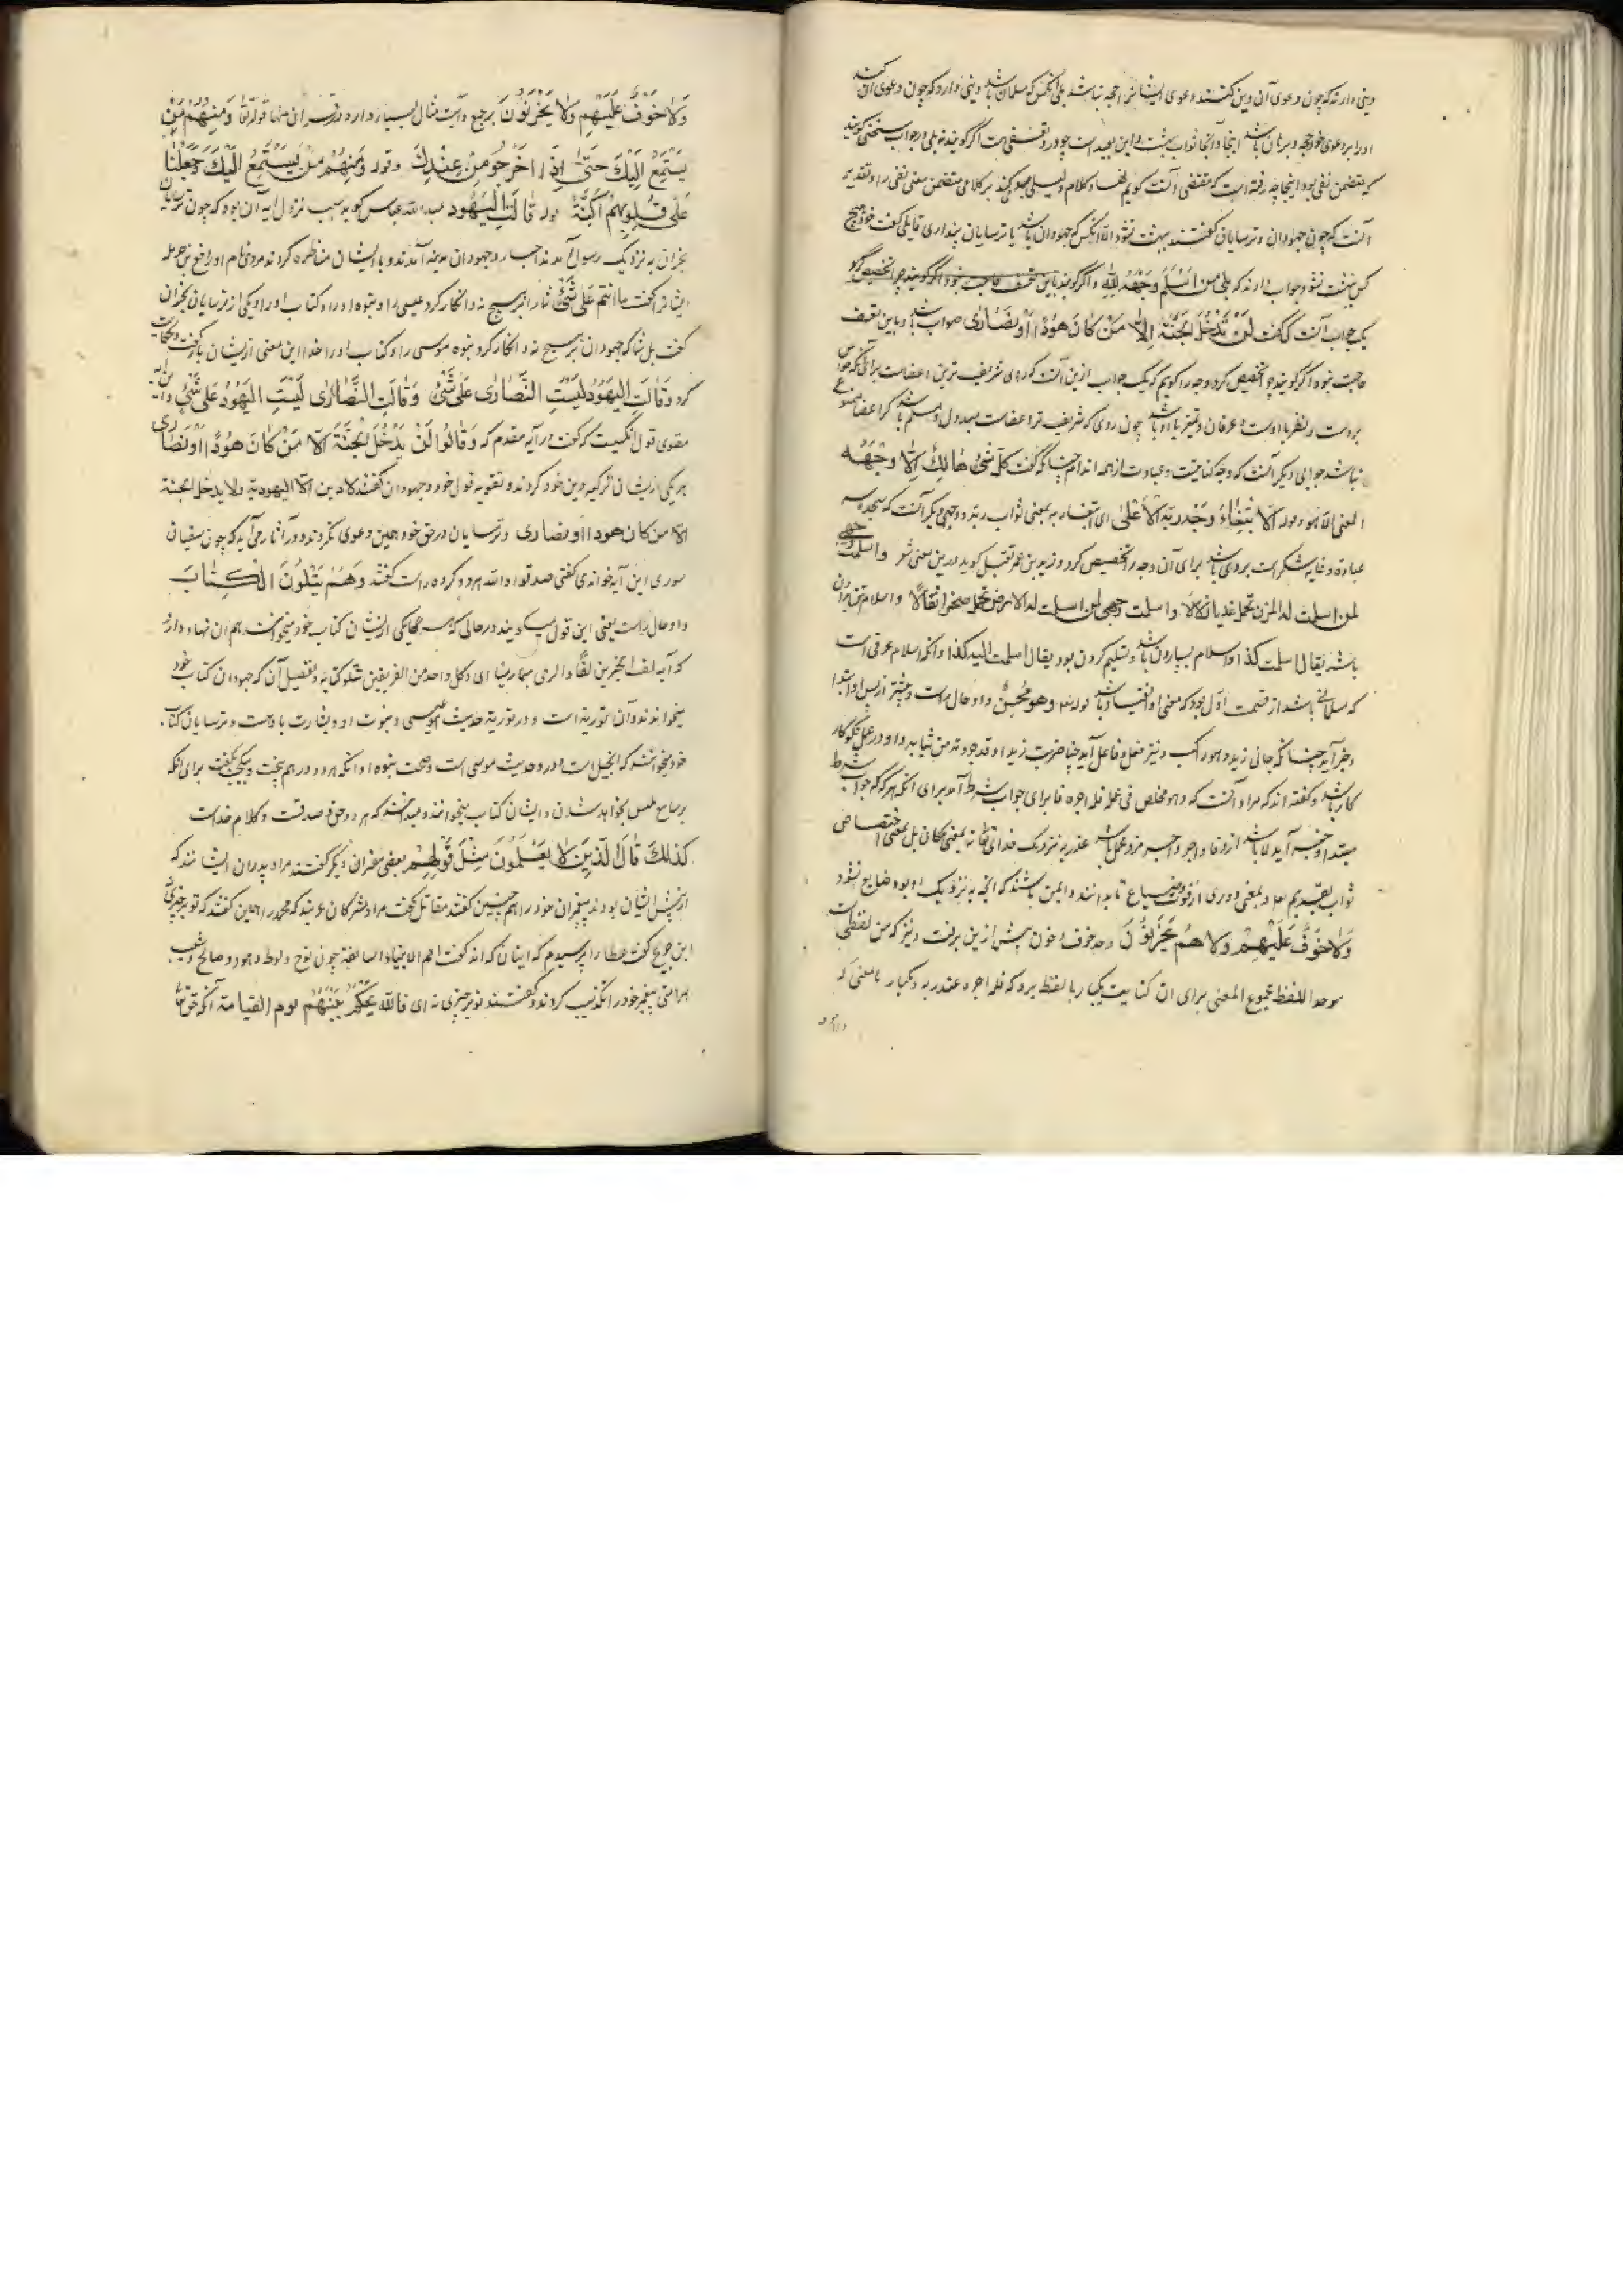 دینی دارند که چون دعوی آن دین کنند دعوی ایشانرا حجه نباشد بلی آنکس که مسلمان باشد دینی دارد که چون دعوی آن کند
او را بر دعوی خود حجه و برهان باشد اینجا و آنجا ثواب بهشت و این بعید است چو در تعسفی هست اگر گویند نه بلی در جواب سخنی گویند
که متضمن نفی بود اینجا چه رفته است که مقتضی آنست گوییم کلام متضمن معنی نفی را و تقدیر
آنست که چون جهودان و ترسایان گفتند بهشت نشود الا آنکس که جهودان باشد یا ترسایان پنداری قایلی گفت خود هیچ
کس بهشت نشود جواب دادند که بلی من اسلم وجهه لله و اگر گویند باین حاجت نبود اگر گویند چرا تخصیص کرد
یک جواب آنست که گفت لن یدخل الجنة الا من کان هودا او نصاری صواب باشد و باین تعسف
حاجت نبود اگر گویند چرا تخصیص کرد وجه را گوییم که یک جواب ازین آنست که روی شریف ترین اعضاست برای آنکه حواس
بروست و نظر با اوست و عرفان و تمیز با او باشد چون روی که شریف تر اعضاست مبذول و مسلم باشد
نباشد جوابی دیگر آنست که وجه کنایتست و عبادت از همه اندام چنانکه گفت کل شئ هالك الا وجهه
المعنی الا هو و قوله الا ابتغاء وجه ربه الاعلی ای ابتغاء ربه بمعنی ثواب ربه و وجهی دیگر آنست که سجده
عبادة و غایة شکر است بروی باشد برای آن وجه را تخصیص کرد و زید بن عمرو نفیل گوید درین معنی شعر و اسلمت وجهی
لمن اسلمت له المزن تحمل عذبا زلالا و اسلمت وجهی لمن اسلمت له الارض تحمل صخرا ثقالا و اسلام
باشد یقال اسلمت کذا و اسلام بسپاردن باشد و تسلیم کردن بود یقال اسلمت الیه کذا و آنکه اسلام عرفی است
که مسلمانی باشد از قسمت اول بود که معنی او انقیاد باشد قوله و هو محسن واو حال راست
و خبر آید چنانکه جانی زید و هو راکب و نیز فعل و فاعل آید چنانکه ضربت زیدا و قد جردته من ثیابه و او در عمل نکوکار
کار باشد و گفته اند که مراد آنست که و هو مخلص فی عمله فله اجره فا برای جواب شرط آمد برای آنکه هر که جواب شرط
مبتدا و خبر آید لابد باشد از فا و اجر و اجرت مزد عمل باشد عند ربه نزدیک خدای تعالی نه بمعنی مکان بل بمعنی اختصاص
ثواب بتقدیم عمل و بمعنی دوری از فوت و ضیاع تا بدانند و ایمن باشند که آنچه به نزدیک او بود ضایع نشود
ولا خوف علیهم ولا هم یحزنون و حد خوف و حزن پیش ازین برفت و نیز که من لفظی است
موحد اللفظ مجموع المعنی برای آن کنایت یکبار با لفظ برد که فله اجره عند ربه و یکبار با معنی که
ولا خوف علیهم ولا یحزنون مرجع و آیت مثال بسیار دارد در قرآن منها قوله تعالی و منهم من
یستمع الیك حتی اذا خرجوا من عندك و قوله و منهم من یستمع الیك و جعلنا
علی قلوبهم اکنة قوله قالت الیهود عبدالله عباس گوید سبب نزول آیه آن بود که چون ترسایان
نجران به نزدیک رسول آمدند احبار و جهودان مدینه آمدند و با ایشان مناظره کردند مردی نام او رافع بن حرمله
ایشانرا گفت ما انتم علی شئ شما بر هیچ نه و انکار کرد عیسی را و نبوه او را و کتاب او را و یکی از ترسایان نجران
گفت بل شما که جهودان بر هیچ نه و انکار کرد نبوه موسی را و کتاب او را خدا این معنی از ایشان باز گفت و حکایت
کرد و قالت الیهود لیست النصاری علی شئ و قالت النصاری لیست الیهود علی شئ
مقوی قول آنکسیت که گفت در آیه مقدم که و قالوا لن یدخل الجنة الا من کان هودا او نصاری
هر یکی از ایشان تزکیه دین خود کردند و تقویه قول خود و جهودان گفتند لا دین الا الیهودیة ولا یدخل الجنة
الا من کان هودا او نصاری و ترسایان در حق خود همین دعوی بکردند و در آثار می آید که چون سفیان
سوری این آیه خواندی گفتی صدقوا والله هر دو گروه راست گفتند و هم یتلون الکتاب
واو حال راست یعنی این قول میگویند در حالی که هر یکی از ایشان کتاب خود میخوانند
که آیه لف الخبرین ای و کل واحد من الفریقین یتلو کتابه و تفصیل آن که جهودان کتاب خود
میخوانند و آن توریة است و در توریة حدیث عیسی و نبوت او و بشارت با اوست و ترسایان کتاب
خود میخوانند که انجیل است و در و حدیث موسی است و صحت نبوه او و آنکه هر دو در هم
نخواهد شدن و ایشان کتاب میخوانند و میدانند که هر دو حق و صدقست و کلام خداست
کذلك قال الذین لا یعلمون مثل قولهم بعضی مفسران دیگر گفتند مراد پدران ایشانند که
از پیش ایشان بودند پیغمبران خود را هم چنین گفتند مقاتل گفت مراد مشرکان عربند که محمد را همین گفتند که تو بر چیزی نه
ابن جریج گفت عطا را پرسیدم که اینان که اند گفت امم الانبیاء السالفة چون نوح و لوط و هود و صالح و شعیب
هر امتی پیغمبر خود را تکذیب کردند و گفتند تو بر چیزی نه ای فالله یحکم بینهم یوم القیامة آنکه حق تعالی